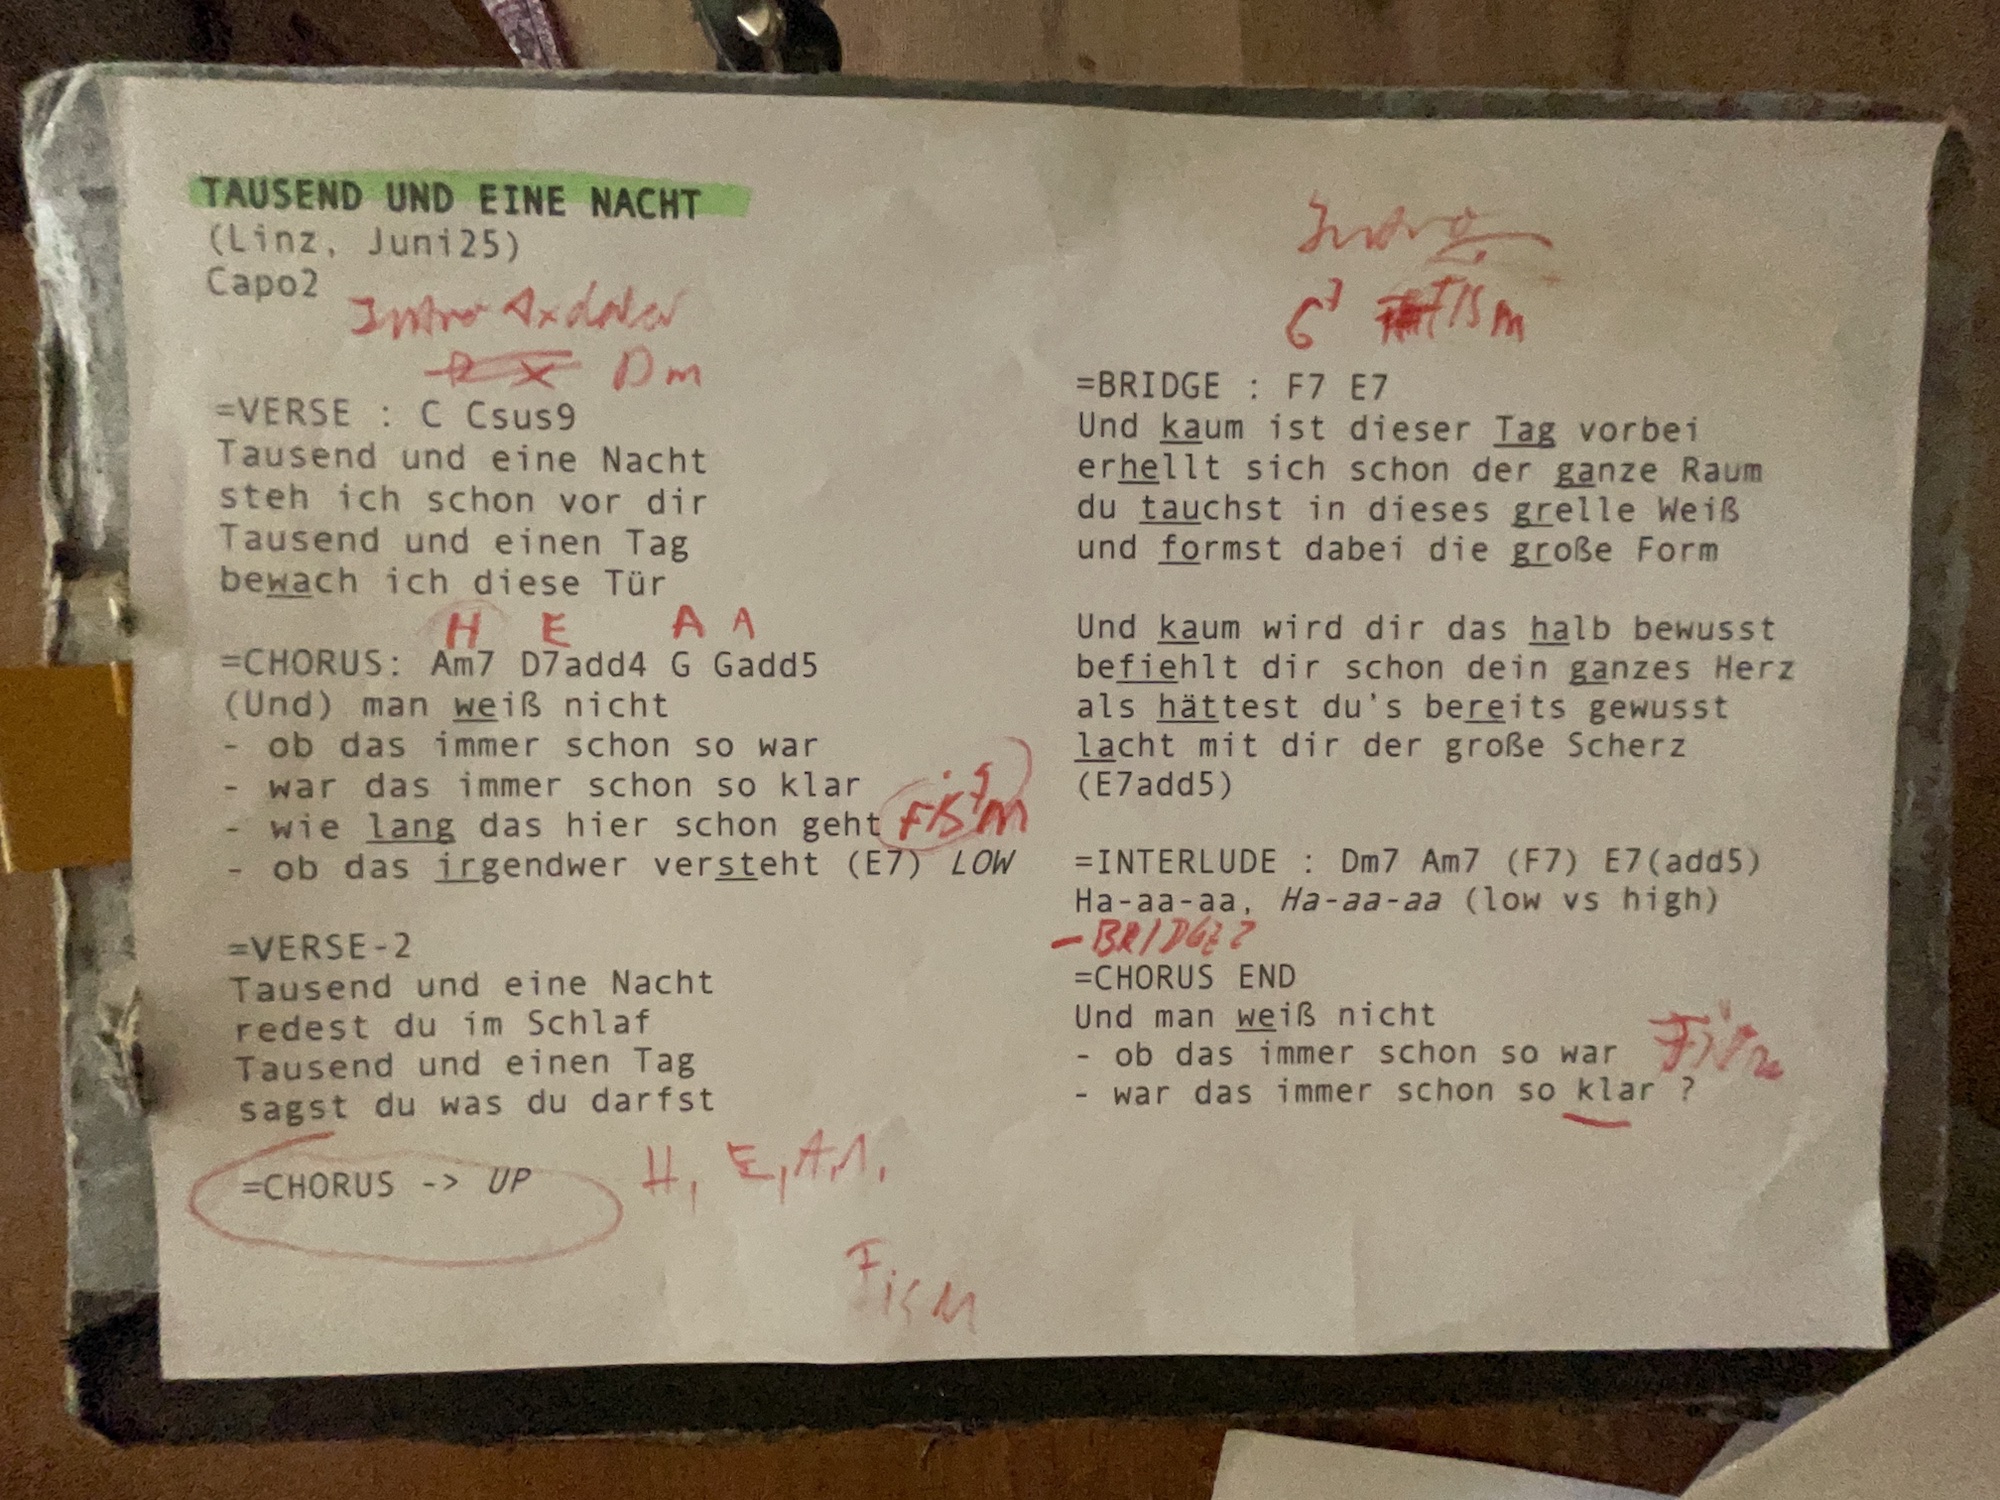 TAUSEND UND EINE NACHT
(Linz, Juni25)
Capo2
Intro 4x
Dm
=VERSE : C Csus9
Tausend und eine Nacht
steh ich schon vor dir
Tausend und einen Tag
bewach ich diese Tür
H E A A
=CHORUS: Am7 D7add4 G Gadd5
(Und) man weiß nicht
- ob das immer schon so war
- war das immer schon so klar
- wie lang das hier schon geht
Fis7m
- ob das irgendwer versteht (E7) LOW
=VERSE-2
Tausend und eine Nacht
redest du im Schlaf
Tausend und einen Tag
sagst du was du darfst
=CHORUS -> UP
H, E, A,
Fism
Intro
G7 Fism
=BRIDGE : F7 E7
Und kaum ist dieser Tag vorbei
erhellt sich schon der ganze Raum
du tauchst in dieses grelle Weiß
und formst dabei die große Form
Und kaum wird dir das halb bewusst
befiehlt dir schon dein ganzes Herz
als hättest du's bereits gewusst
lacht mit dir der große Scherz
(E7add5)
=INTERLUDE : Dm7 Am7 (F7) E7(add5)
Ha-aa-aa, Ha-aa-aa (low vs high)
- BRIDGE 2
=CHORUS END
Und man weiß nicht
- ob das immer schon so war
- war das immer schon so klar ?